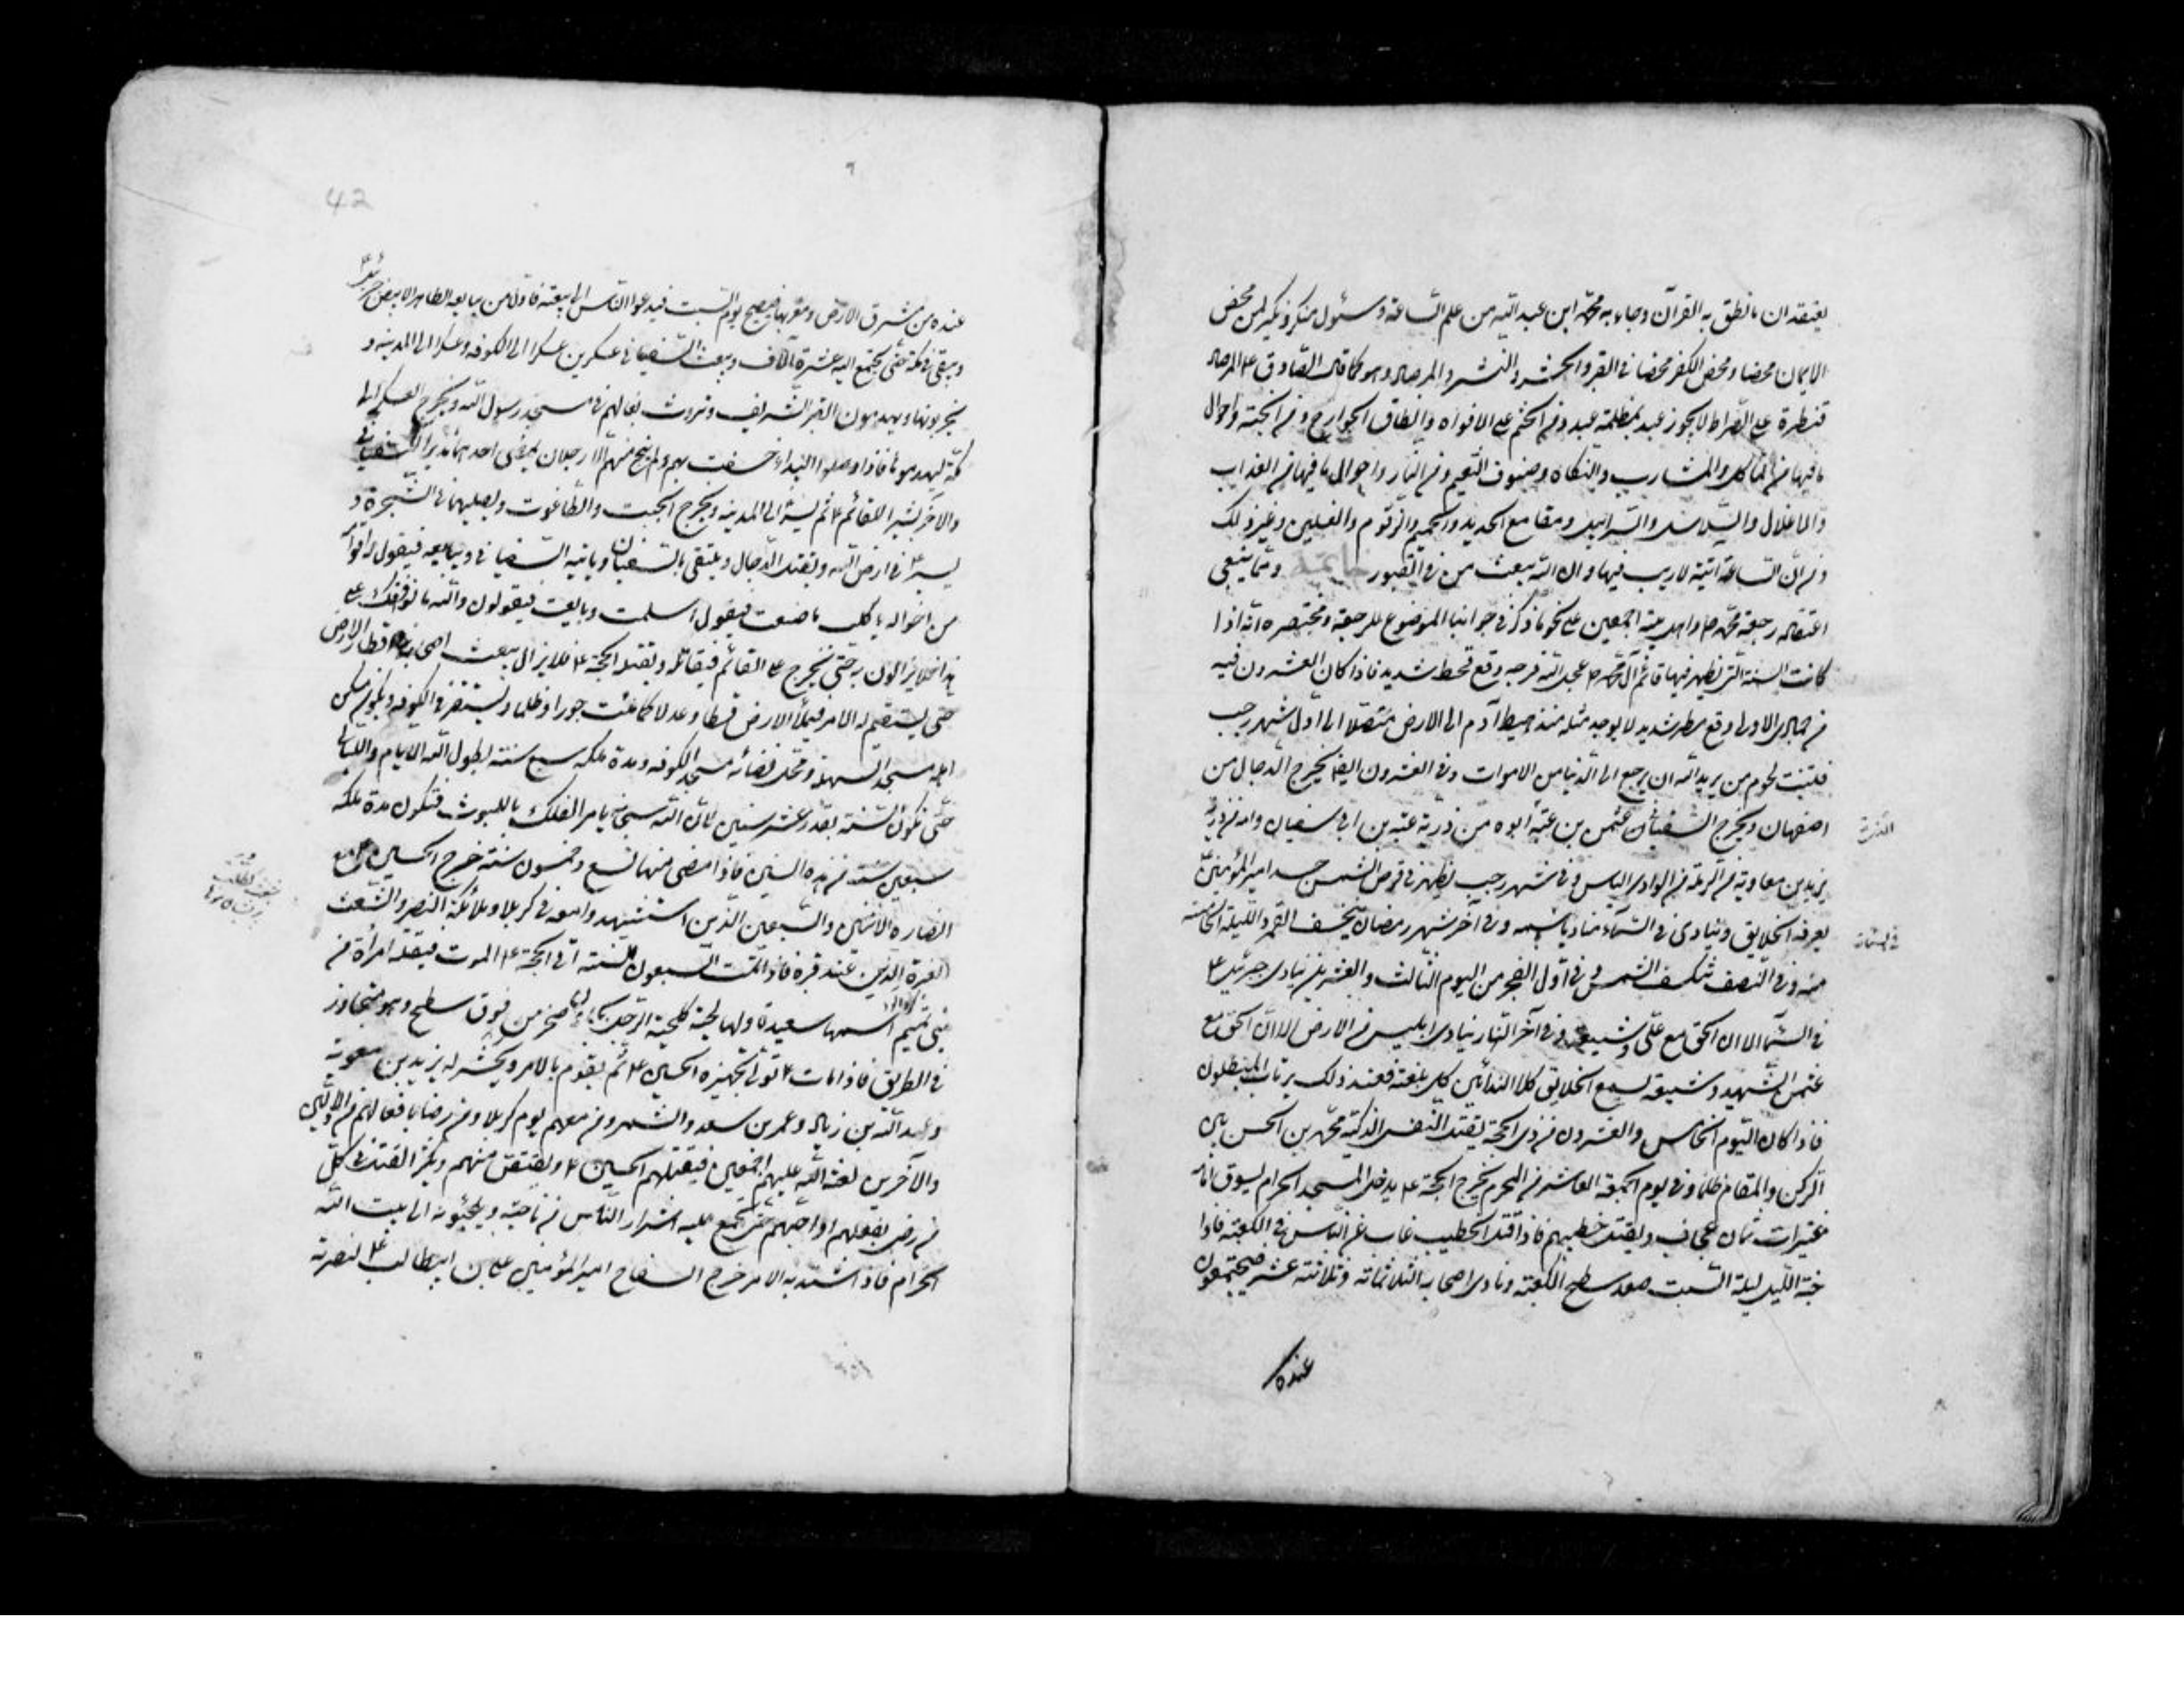 يعتقد ان ما نطق به القرآن وجاء به محمد ابن عبد الله من علم الساعة وسئول منكر ونكير لمن محض
الايمان محضا ومحض الكفر محضا في القبر والحشر والنشر والمرصاد وهو كما قال الصادق ع المرصاد
قنطرة على الصراط لا يجوز عبد بمظلمة عبد ومن الختم على الافواه وانطاق الجوارح ومن الجنة واحوال
ما فيها من المآكل والمشارب والنكاح وصنوف النعيم ومن النار واحوال ما فيها من العذاب
والاغلال والسلاسل والسرابيل ومقامع الحديد والحميم والزقوم والغسلين وغير ذلك
ومن ان الساعة آتية لا ريب فيها وان الله يبعث من في القبور خاتمة ومما ينبغي
اعتقاده رجعة محمد ص واهل بيته اجمعين على نحو ما ذكر في جوابنا الموضوع للرجعة ومختصره انه اذا
كانت السنة التي يظهر فيها قائم آل محمد ص عجل الله فرجه وقع قحط شديد فاذا كان العشرون فيه
من جمادى الاولى وقع مطر شديد لا يوجد مثله منذ هبط آدم الى الارض متصلا الى اول شهر رجب
فتنبت لحوم من يريد الله ان يرجع الى الدنيا من الاموات وفي العشرون ايضا يخرج الدجال من
اصفهان ويخرج السفياني عثمن بن عتبة ابوه من ذرية عتبة بن ابي سفيان وامه من ذرية
يزيد بن معاوية من الرملة من الوادي اليابس وفي شهر رجب يظهر في قرص الشمس جسد امير المؤمنين
يعرفه الخلايق وينادى في السماء مناد باسمه وفي آخر شهر رمضان ينخسف القمر والليلة الخامسة
منه وفي النصف تنكسف الشمس وفي اول الفجر من اليوم الثالث والعشرين ينادى جبرئيل ع
في السماء الا ان الحق مع علي وشيعته وفي آخر النهار ينادى ابليس من الارض الا ان الحق مع
عثمن الشهيد وشيعته يسمع الخلايق كلا الندائين كل بلغته فعند ذلك يرتاب المبطلون
فاذا كان اليوم الخامس والعشرون من ذي الحجة يقتل النفس الزكية محمد بن الحسن بين
الركن والمقام ظلما وفي يوم الجمعة العاشر من المحرم يخرج الحجة ع يدخل المسجد الحرام يسوق امامه
عنيزات ثمان عجاف ويقتل خطيبهم فاذا قتل الخطيب غاب عن الناس في الكعبة فاذا
جنه الليل ليلة السبت صعد سطح الكعبة ونادى اصحابه الثلاثمائة وثلاثة عشر فيجتمعون
عنده
في السماء
42
عنده من مشرق الارض ومغربها فيصبح يوم السبت فيدعوا الناس الى بيعته فاول من يبايعه الطاهر الابيض جبرئيل ع
ويبقى في مكة حتى يجتمع اليه عشرة آلاف ويبعث السفياني عسكرين عسكرا الى الكوفه وعسكرا الى المدينه و
يخربونها ويهدمون القبر الشريف وتروث بغالهم في مسجد رسول الله ويخرج العسكر الى
مكة ليهدموها فاذا وصلوا البيداء خسفت بهم ولم ينج منهم الا رجلان يمضى احدهما نذيرا للسفياني
والآخر بشيرا للقائم ع ثم يسير الى المدينه ويخرج الجبت والطاغوت ويصلبهما في الشجرة و
يسير ع في ارض الله ويقتل الدجال ويلتقى بالسفياني ويأتيه السفياني ويبايعه فيقول له اقوام
من اخواله يا كلب ما صنعت فيقول اسلمت وبايعت فيقولون والله ما نوافقك على
هذا فلا يزالون به حتى يخرج على القائم فيقاتله ويقتله الحجة ع فلا يزال يبعث اصحابه في اقطار الارض
حتى يستقيم له الامر فيملأ الارض قسطا وعدلا كما ملئت جورا وظلما ويستقر في الكوفه ويكون مسكن
اهله مسجد السهلة ومحل قضائه مسجد الكوفه ومدة ملكه سبع سنة يطول الله الايام والليالي
حتى تكون السنة بقدر عشر سنين لان الله سبحانه يأمر الفلك باللبوث فتكون مدة ملكه
سبعين سنة من هذه السنين فاذا مضى منها تسع وخمسون سنة خرج الحسين ع مع
انصاره الاثنين والسبعين الذين استشهدوا معه في كربلا وملائكة النصر والشعث
الغبرة الذين عند قبره فاذا تمت السبعون السنة اتى الحجة ع الموت فيقتله امرأة من
بني تميم اسمها سعيدة ولها لحية كلحية الرجل بجاون صخر من فوق سطح وهو متجاوز
في الطريق فاذا مات ع تولى تجهيزه الحسين ع ثم يقوم بالامر ويحشر له يزيد بن معوية
وعبيد الله بن زياد وعمر بن سعد والشمر ومن معهم يوم كربلا ومن رضى بافعالهم من الاولين
والآخرين لعنة الله عليهم اجمعين فيقتلهم الحسين ع ويقتص منهم ويكثر القتل في كل
من رضى بفعلهم او احبهم حتى يجتمع عليه اشرار الناس من كل ناحية ويلجئونه الى بيت الله
الحرام فاذا اشتد به الامر خرج السفاح امير المؤمنين علي بن ابيطالب ع لنصرته